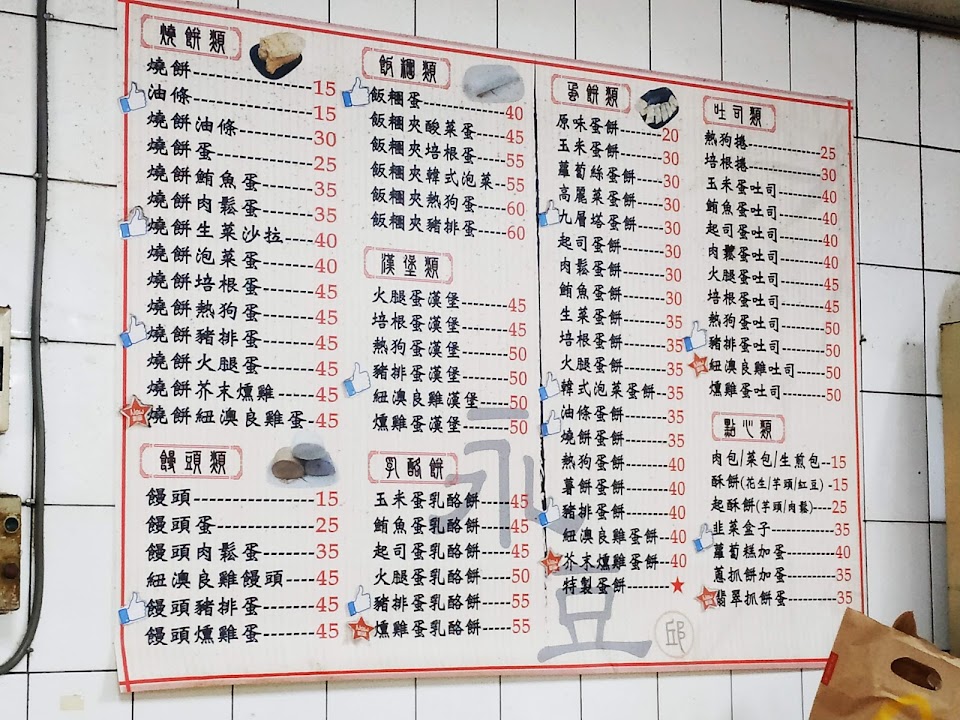 燒餅類
燒餅 15
油條 15
燒餅油條 30
燒餅蛋 25
燒餅鮪魚蛋 35
燒餅肉鬆蛋 35
燒餅生菜沙拉 40
燒餅泡菜蛋 40
燒餅培根蛋 45
燒餅熱狗蛋 45
燒餅豬排蛋 45
燒餅火腿蛋 45
燒餅芥末燻雞 45
燒餅紐澳良雞蛋 45
饅頭類
饅頭 15
饅頭蛋 25
饅頭肉鬆蛋 35
紐澳良雞饅頭 45
饅頭豬排蛋 45
饅頭燻雞蛋 45
飯糰類
飯糰蛋 40
飯糰夾酸菜蛋 45
飯糰夾培根蛋 55
飯糰夾韓式泡菜 55
飯糰夾熱狗蛋 60
飯糰夾豬排蛋 60
漢堡類
火腿蛋漢堡 45
培根蛋漢堡 45
熱狗蛋漢堡 50
豬排蛋漢堡 50
紐澳良雞漢堡 50
燻雞蛋漢堡 50
乳酪餅
玉米蛋乳酪餅 45
鮪魚蛋乳酪餅 45
起司蛋乳酪餅 45
火腿蛋乳酪餅 50
豬排蛋乳酪餅 55
燻雞蛋乳酪餅 55
蛋餅類
原味蛋餅 20
玉米蛋餅 30
蘿蔔絲蛋餅 30
高麗菜蛋餅 30
九層塔蛋餅 30
起司蛋餅 30
肉鬆蛋餅 30
鮪魚蛋餅 30
生菜蛋餅 35
培根蛋餅 35
火腿蛋餅 35
韓式泡菜蛋餅 35
油條蛋餅 35
燒餅蛋餅 35
熱狗蛋餅 40
薯餅蛋餅 40
豬排蛋餅 40
紐澳良雞蛋餅 40
芥末燻雞蛋餅 40
特製蛋餅 ★
吐司類
熱狗捲 25
培根捲 30
玉米蛋吐司 40
鮪魚蛋吐司 40
起司蛋吐司 40
肉鬆蛋吐司 40
火腿蛋吐司 45
培根蛋吐司 45
熱狗蛋吐司 50
豬排蛋吐司 50
紐澳良雞吐司 50
燻雞蛋吐司 50
點心類
肉包/菜包/生煎包 15
酥餅(花生/芋頭/紅豆) 15
起酥餅(芋頭/肉鬆) 25
韭菜盒子 35
蘿蔔糕加蛋 40
蔥抓餅加蛋 35
翡翠抓餅蛋 35
永豆
邱